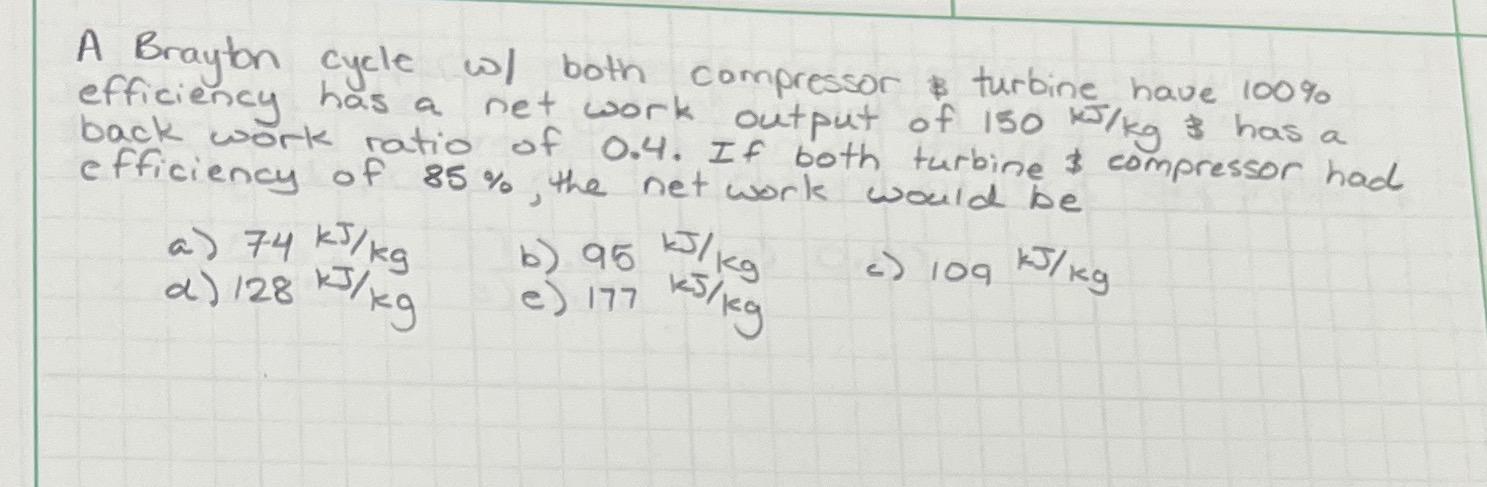 A Brayton cycle w/ both compressor & turbine have 100%
efficiency has a net work output of 150 kJ/kg & has a
back work ratio of 0.4. If both turbine & compressor had
efficiency of 85%, the net work would be
a) 74 kJ/kg b) 95 kJ/kg c) 109 kJ/kg
d) 128 kJ/kg e) 177 kJ/kg